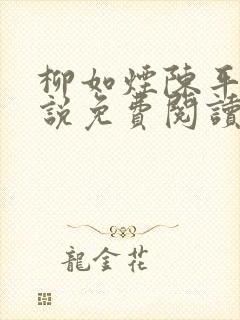 柳如煙陳平
說免費閱讀
龍金花